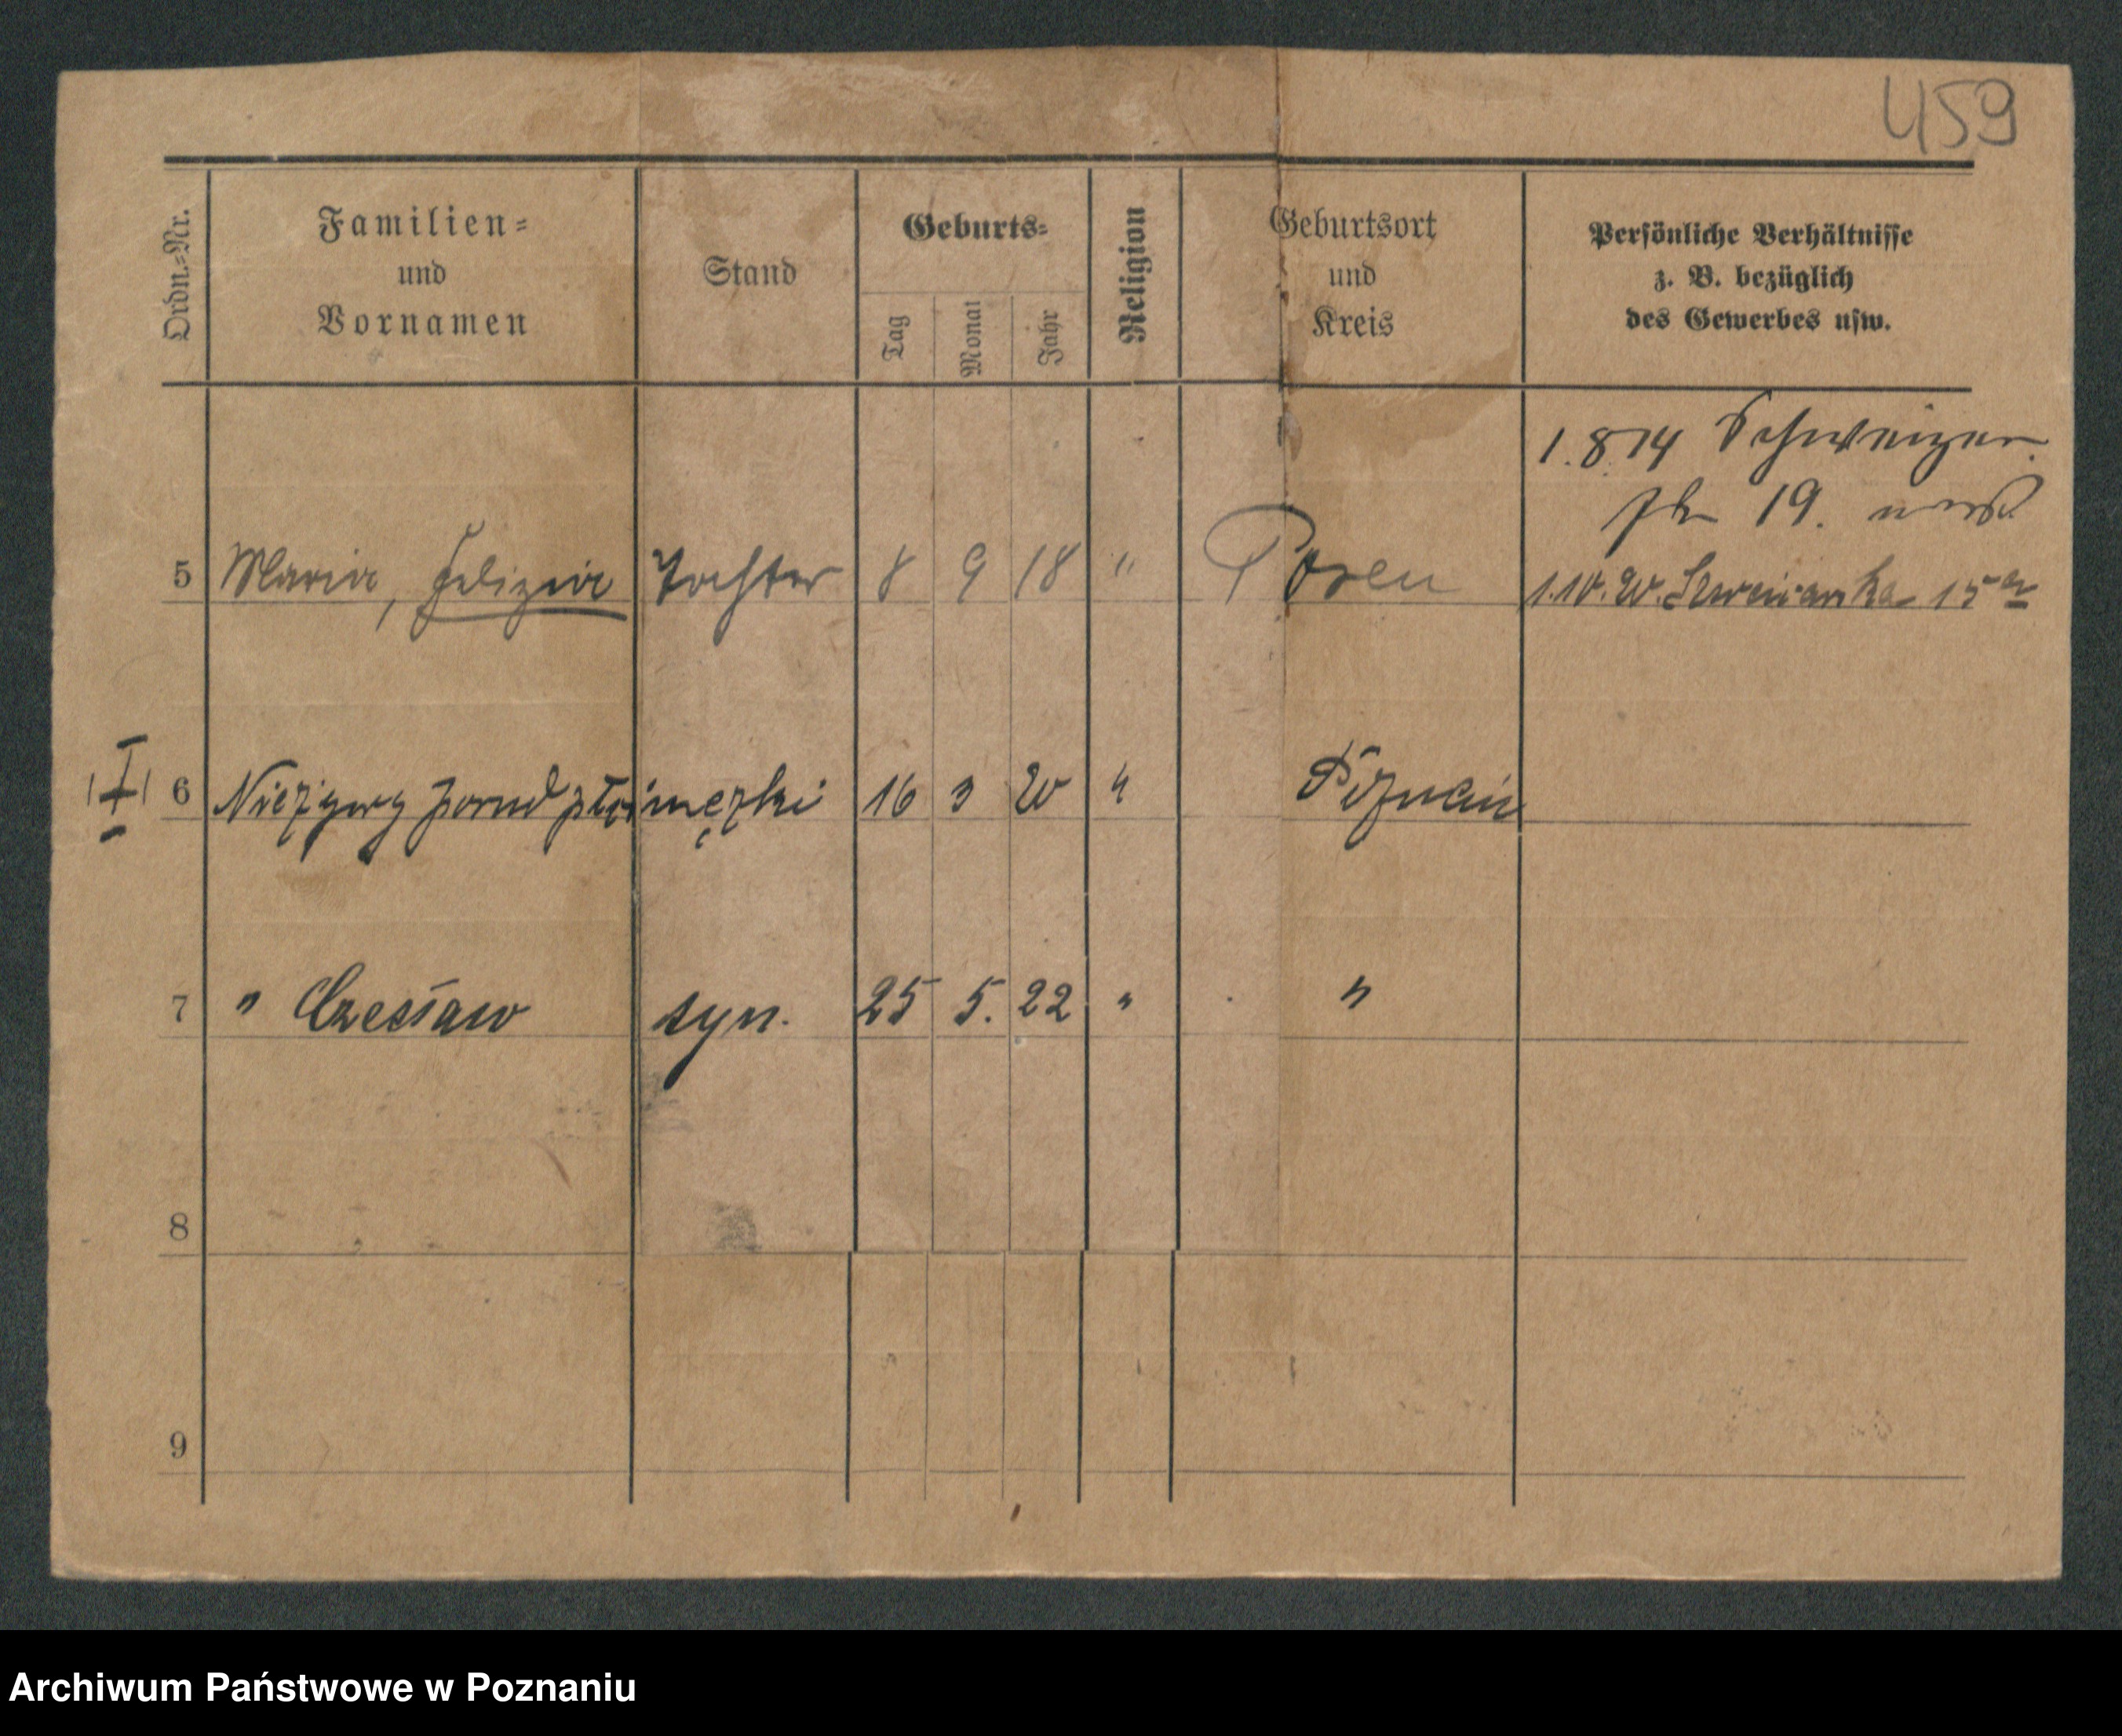 459
Ordn.-Nr.
Familien-
und
Vornamen
Stand
Geburts-
Tag
Monat
Jahr
Religion
Geburtsort
und
Kreis
Persönliche Verhältnisse
z. B. bezüglich
des Gewerbes usw.
1.8.14 Schweizer
19.
5 Maria, Felizia Tochter 8 9 18 " Posen 1.10.20. 15
6 Nieżywy porod płci męzki 16 3 20 " Poznań
7 " Czesław syn. 25 5. 22 " "
8
9
Archiwum Państwowe w Poznaniu